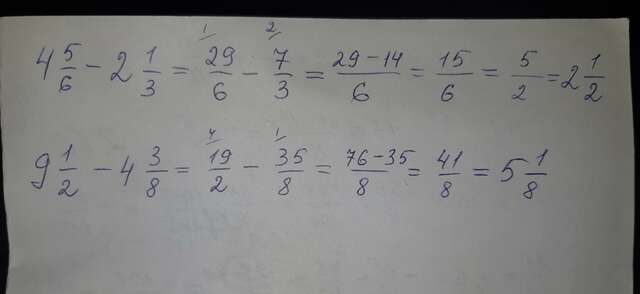 4 5/6 - 2 1/3 = 29/6 - 7/3 = 29-14/6 = 15/6 = 5/2 = 2 1/2
9 1/2 - 4 3/8 = 19/2 - 35/8 = 76-35/8 = 41/8 = 5 1/8